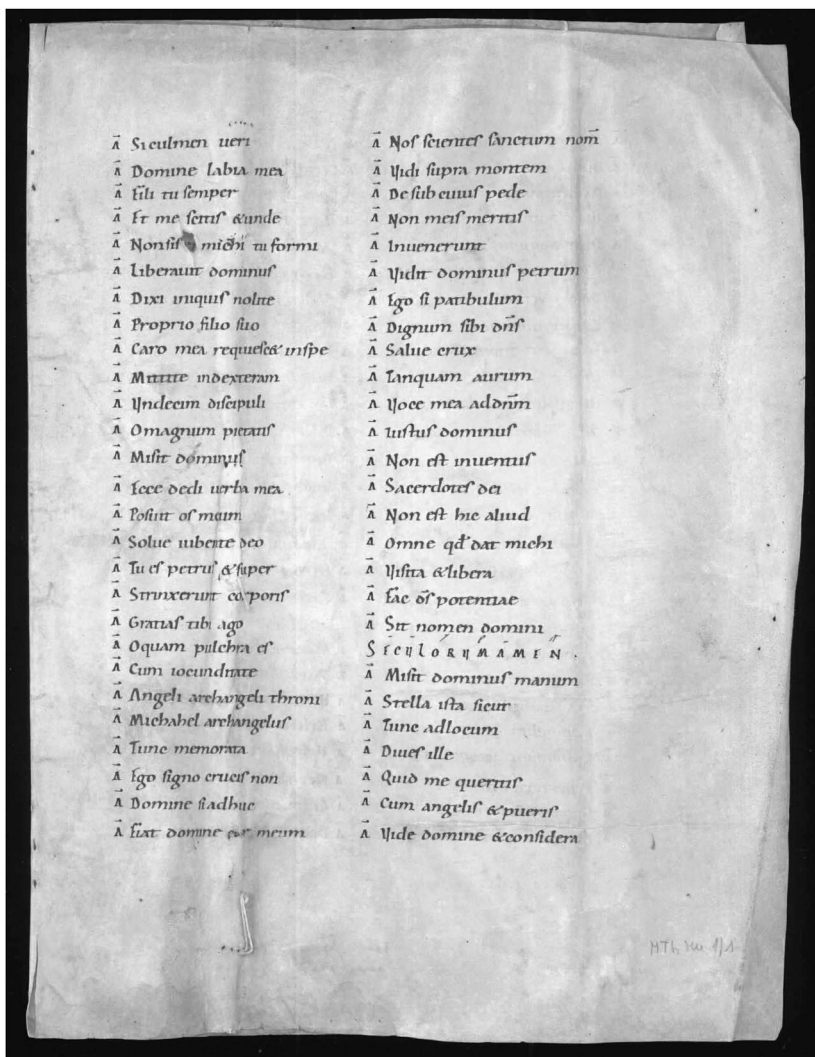 A Si culmen ueri
A Domine labia mea
A Fili tu semper
A Et me scitis & unde
A Non sis michi tu formi
A Liberauit dominus
A Dixi iniquis nolite
A Proprio filio suo
A Caro mea requiesc& inspe
A Mittite indexteram
A Undecim discipuli
A Omagnum pietatis
A Misit dominus
A Ecce dedi uerba mea
A Posuit os meum
A Solue iubente deo
A Tu es petrus & super
A Strinxerunt corporis
A Gratias tibi ago
A Oquam pulchra es
A Cum iocunditate
A Angeli archangeli throni
A Michahel archangelus
A Tunc memorata
A Ego signo crucis non
A Domine si adhuc
A Fiat domine cor meum
A Nos scientes sanctum nom̄
A Vidi supra montem
A De sub cuius pede
A Non meis meritis
A Inuenerunt
A Vidit dominus petrum
A Ego si patibulum
A Dignum sibi dn̄s
A Salue crux
A Tanquam aurum
A Voce mea addn̄m
A Iustus dominus
A Non est inuentus
A Sacerdotes dei
A Non est hic aliud
A Omne qđ dat michi
A Visita & libera
A Fac ds̄ potentiae
A Sit nomen domini
SECULORUM AMEN.
A Misit dominus manum
A Stella ista sicut
A Tunc adlocum
A Diues ille
A Quid me queritis
A Cum angelis & pueris
A Vide domine & considera